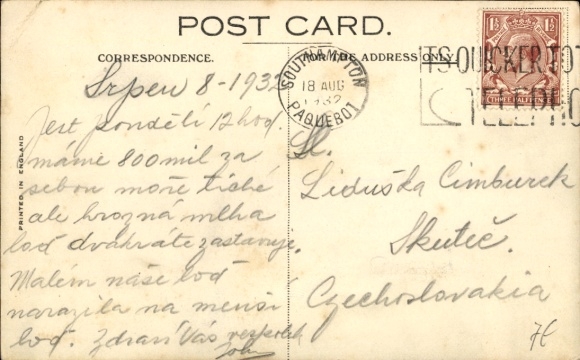 POST CARD.
CORRESPONDENCE.
FOR THE ADDRESS ONLY.
SOUTHAMPTON
18 AUG
1932
PAQUEBOT
ITS QUICKER TO
TELEPHO
1½ 1½
THREE HALFPENCE
PRINTED IN ENGLAND
Srpen 8-1932
Jest pondělí 12 hod.
máme 800 mil za
sebou moře tiché
ale hrozná mlha
loď dvakráte zastavuje.
Malém naše loď
narazila na menší
loď. Zdraví Vás
Sl.
Liduška Cimburek
Skuteč.
Czechoslovakia